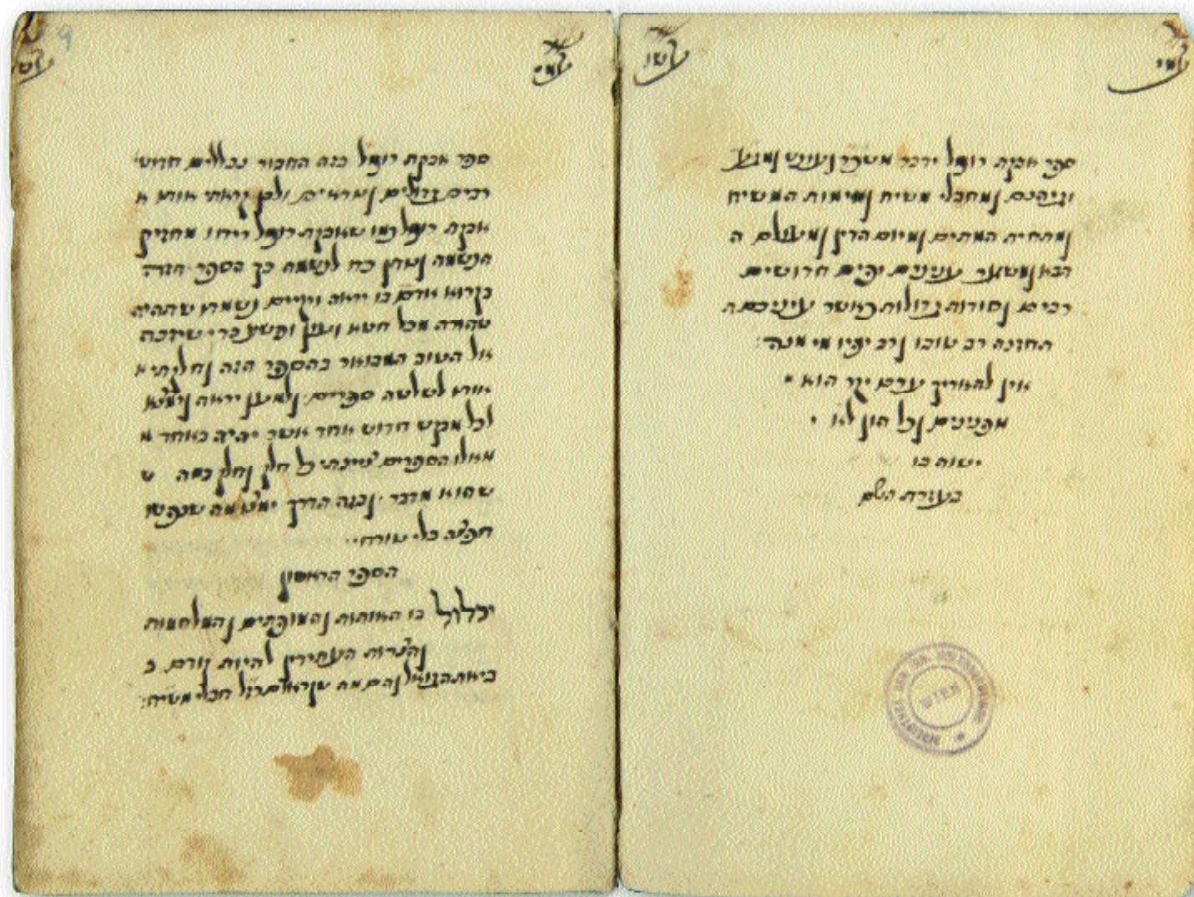 ספר אבקת רוכל ידבר משכר ועונש ומגע
וגיהנם ומחבלי משיח ומימות המשיח
ומתחית המתים ומיום הדין ומעולם ה
הבא ומשאר ענינים יפים חדושים
רבים וסודות גדולות כאשר עיניכם ה
תחזנה רב טובו ורב יפיו מי מנה:
אין להאריך ערכם יקר הוא
מפנינים וכל הון לא י
ישוה בו
בעזרת השם
WIEN
ספר אבקת רוכל בזה החבור נכללים חדושי
רבים גדולים ונוראים ולכן קראתי אותו א
אבקת רוכל כמו שאבקת רוכל ריחו מחזיק
הנשמה ונותן כח לנשמה כך הספר הזה
בקרוא אדם בו יראה ויקיים נשמתו שתהיה
טהורה מכל חטא ועון ופשע כדי שיזכה
אל הטוב המבואר בהספר הזה וחלקתי א
אותו לשלשה ספרים. ולמען יראה וימצא
לכל מבקש חדוש אחד אשר יהיה באחד מ
מאלו הספרים ציינתי כל חלק וחלק במה ש
שהוא מדבר. ובזה הדרך ימצא מה שנפשו
חפצה בלי טורח:
הספר הראשון
יכלול בו האותות והמופתים והמלחמות
והצרות העתידין להיות קודם ב
ביאת הגואל והם מה חבלי משיח: